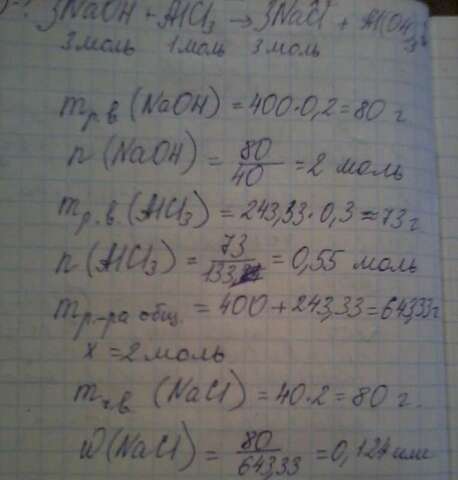 3NaOH + AlCl₃ → 3NaCl + Al(OH)₃↓
3 моль 1 моль 3 моль
m р.в (NaOH) = 400·0,2 = 80 г
n (NaOH) = 80/40 = 2 моль
m р.в. (AlCl₃) = 243,33·0,3 ≈ 73 г
n (AlCl₃) = 73/133, = 0,55 моль
m р-ра общ = 400 + 243,33 = 643,33 г
x = 2 моль
(NaCl) = 40·2 = 80 г.
ω (NaCl) = 80/643,33 = 0,124 или